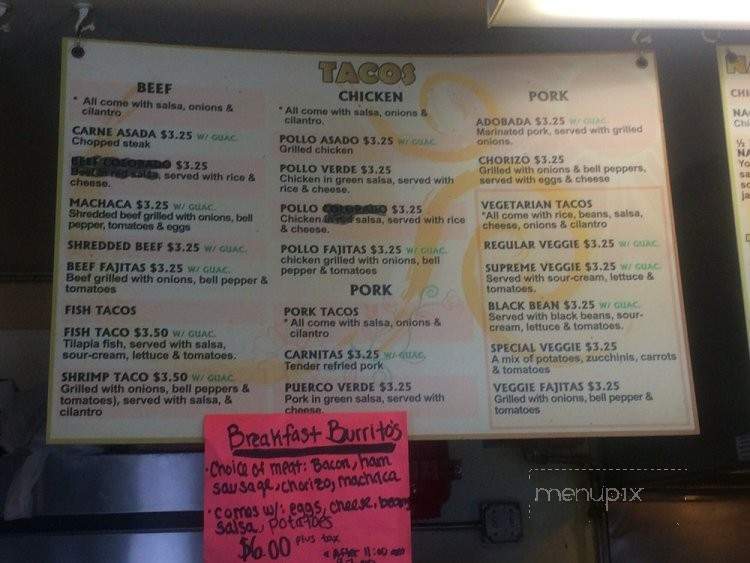 TACOS
BEEF
* All come with salsa, onions &
cilantro
CARNE ASADA $3.25 W/ GUAC.
Chopped steak
BEEF COLORADO $3.25
Beef in red salsa, served with rice &
cheese.
MACHACA $3.25 W/ GUAC.
Shredded beef grilled with onions, bell
pepper, tomatoes & eggs
SHREDDED BEEF $3.25 W/ GUAC.
BEEF FAJITAS $3.25 W/ GUAC.
Beef grilled with onions, bell pepper &
tomatoes
FISH TACOS
FISH TACO $3.50 W/ GUAC.
Tilapia fish, served with salsa,
sour-cream, lettuce & tomatoes.
SHRIMP TACO $3.50 W/ GUAC.
Grilled with onions, bell peppers &
tomatoes), served with salsa, &
cilantro
CHICKEN
* All come with salsa, onions &
cilantro.
POLLO ASADO $3.25 W/ GUAC.
Grilled chicken
POLLO VERDE $3.25
Chicken in green salsa, served with
rice & cheese.
POLLO COLORADO $3.25
Chicken in red salsa, served with rice
& cheese.
POLLO FAJITAS $3.25 W/ GUAC.
chicken grilled with onions, bell
pepper & tomatoes
PORK
PORK TACOS
* All come with salsa, onions &
cilantro
CARNITAS $3.25 W/ GUAC.
Tender refried pork
PUERCO VERDE $3.25
Pork in green salsa, served with
cheese.
PORK
ADOBADA $3.25 W/ GUAC.
Marinated pork, served with grilled
onions.
CHORIZO $3.25
Grilled with onions & bell peppers,
served with eggs & cheese
VEGETARIAN TACOS
*All come with rice, beans, salsa,
cheese, onions & cilantro
REGULAR VEGGIE $3.25 W/ GUAC.
SUPREME VEGGIE $3.25 W/ GUAC.
Served with sour-cream, lettuce &
tomatoes.
BLACK BEAN $3.25 W/ GUAC.
Served with black beans, sour-
cream, lettuce & tomatoes.
SPECIAL VEGGIE $3.25
A mix of potatoes, zucchinis, carrots
& tomatoes
VEGGIE FAJITAS $3.25
Grilled with onions, bell pepper &
tomatoes
Breakfast Burrito's
• Choice of meat: Bacon, ham
sausage, chorizo, machaca
• comes w/: eggs, cheese, beans
salsa, potatoes
$6.00 plus tax
* After 11:00 am
menupix